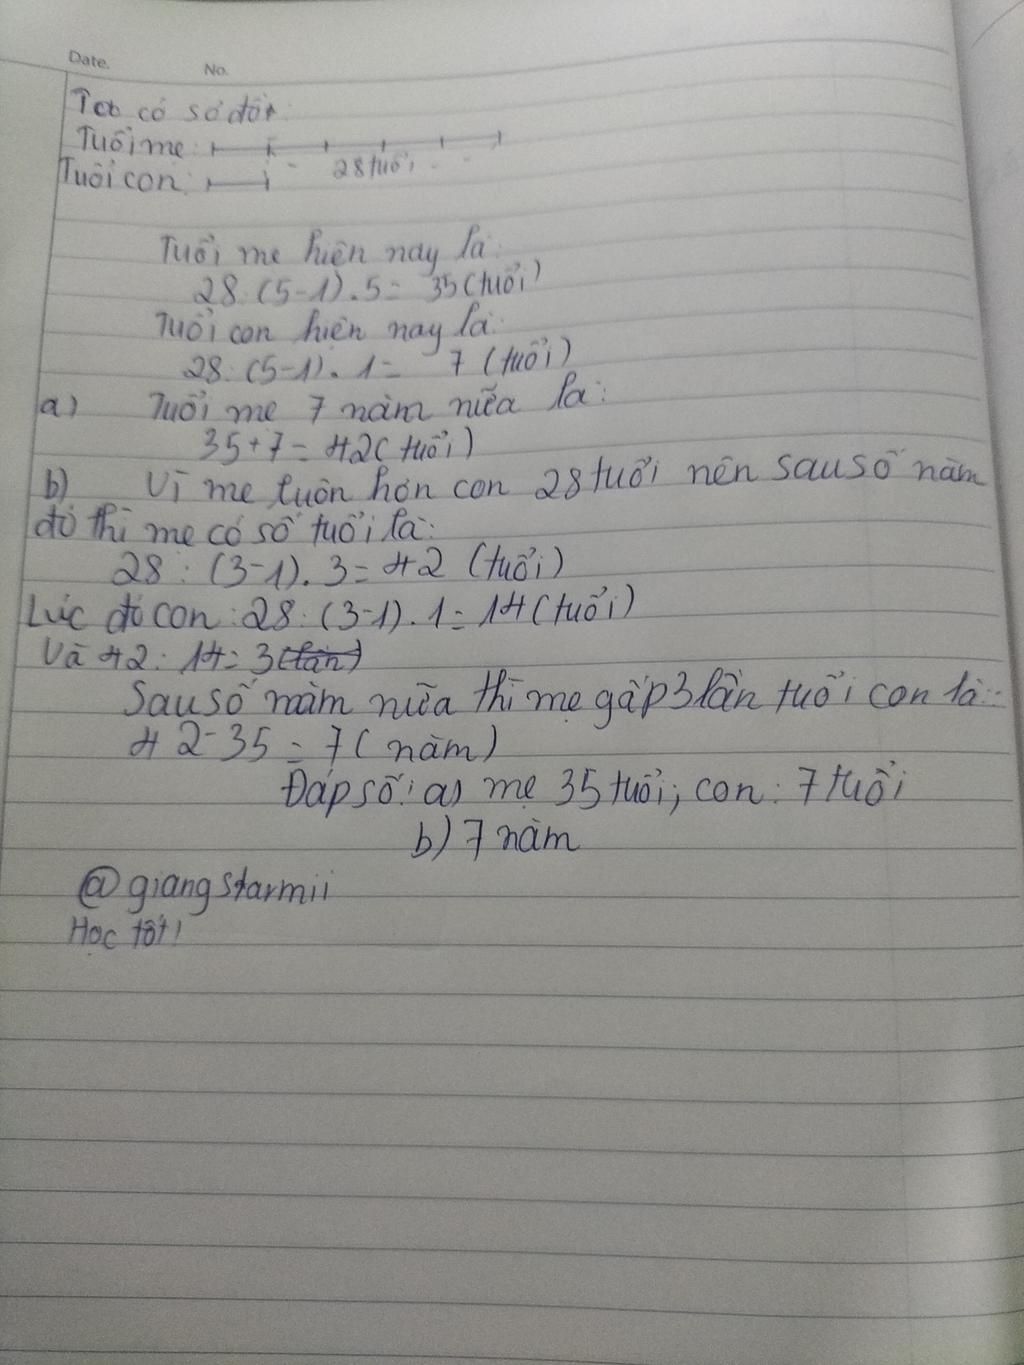 Date. No.
Ta có sơ đồ:
Tuổi mẹ:
28 tuổi
Tuổi con:
Tuổi mẹ hiện nay là:
28:(5-1).5= 35(tuổi)
Tuổi con hiện nay là:
28:(5-1).1= 7 (tuổi)
a) Tuổi mẹ 7 năm nữa là:
35+7=42(tuổi)
b) Vì mẹ luôn hơn con 28 tuổi nên sau số năm
đó thì mẹ có số tuổi là:
28:(3-1).3=42 (tuổi)
Lúc đó con:28:(3-1).1=14(tuổi)
Và 42:14=3(lần)
Sau số năm nữa thì mẹ gấp 3 lần tuổi con là:
42-35=7(năm)
Đáp số: a) mẹ 35 tuổi; con: 7 tuổi
b) 7 năm
@giangstarmii
Học tốt!